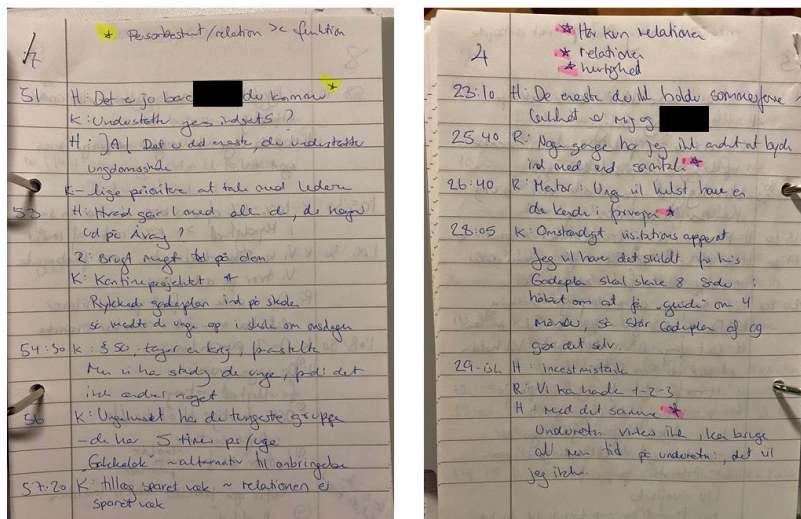 7
* Personbestemt/relation >< funktion
51 H: Det er jo bare du kommer *
K: Understøtter jeres indsats?
H: JA! Det er det eneste, der understøtter
ungdoms
K: - lige prioritere at tale med lederen
53 H: Hvad gør I med alle de, der
ud på
R: Brugt meget tid på dem
K: Kantineprojektet *
Rykkede gadeplan ind på skolen
så mødte de unge op i skole om onsdagen
54:30 K: § 50, tager en krig,
Men vi har stadig de unge, fordi det
ikke ændrer noget
56 K: Ungehuset har de tungeste gruppe
- de har 5 timer pr/uge
~ alternativ til anbringelse
57:20 K: tillæg sparet væk ~ relationen er
sparet væk
4
* Hør kun relationer
* relationer
* hurtighed
23:10 H: De eneste du vil holde sommerferie
er mig og
25:40 R: Nogle gange har jeg ikke andet at byde
ind med end samtale *
26:40 R: Mentor: Unge vil helst have en
de kender i forvejen *
28:05 K: Omstændigt visitations apparat
Jeg vil have det skildt fra his
Gadeplan skal skrive 8 sider i
håbet om at få "guide" om 4
måneder, så står Gadeplan af og
gør det selv.
H: incestmistanke
R: Vi kan handle 1-2-3
H: med det samme *
Underretn virker ikke, kan bruge
al min tid på underretn, det vil
jeg ikke.